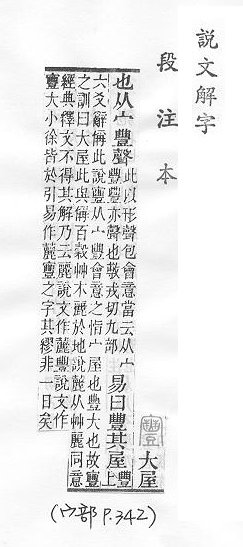 說文解字
段注本
寷大屋
也从宀豐聲
此以形聲包會意當云从宀
豐豐亦聲也敬戎切九部
易曰豐其屋
豐
上
六爻辭稱此說寷从宀豐會意之恉宀屋也豐大也故寷
之訓曰大屋此與稱百穀艸木麗於地說䕻从艸麗同意
經典釋文不得其解乃云麗說文作䕻豐說文作
寷大小徐皆於引易作䕻寷之字其繆非一日矣
(宀部 P.342)